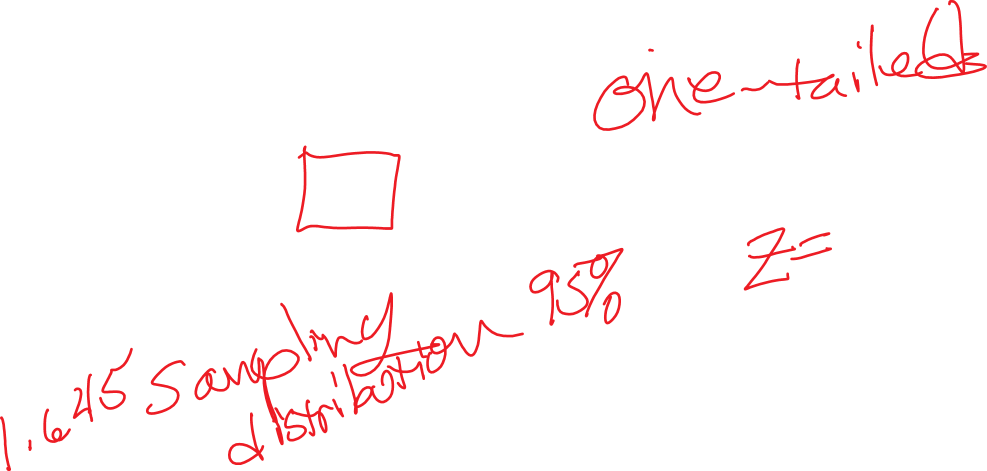 one-tailed
Z=
95%
1.645 Sampling
distribution